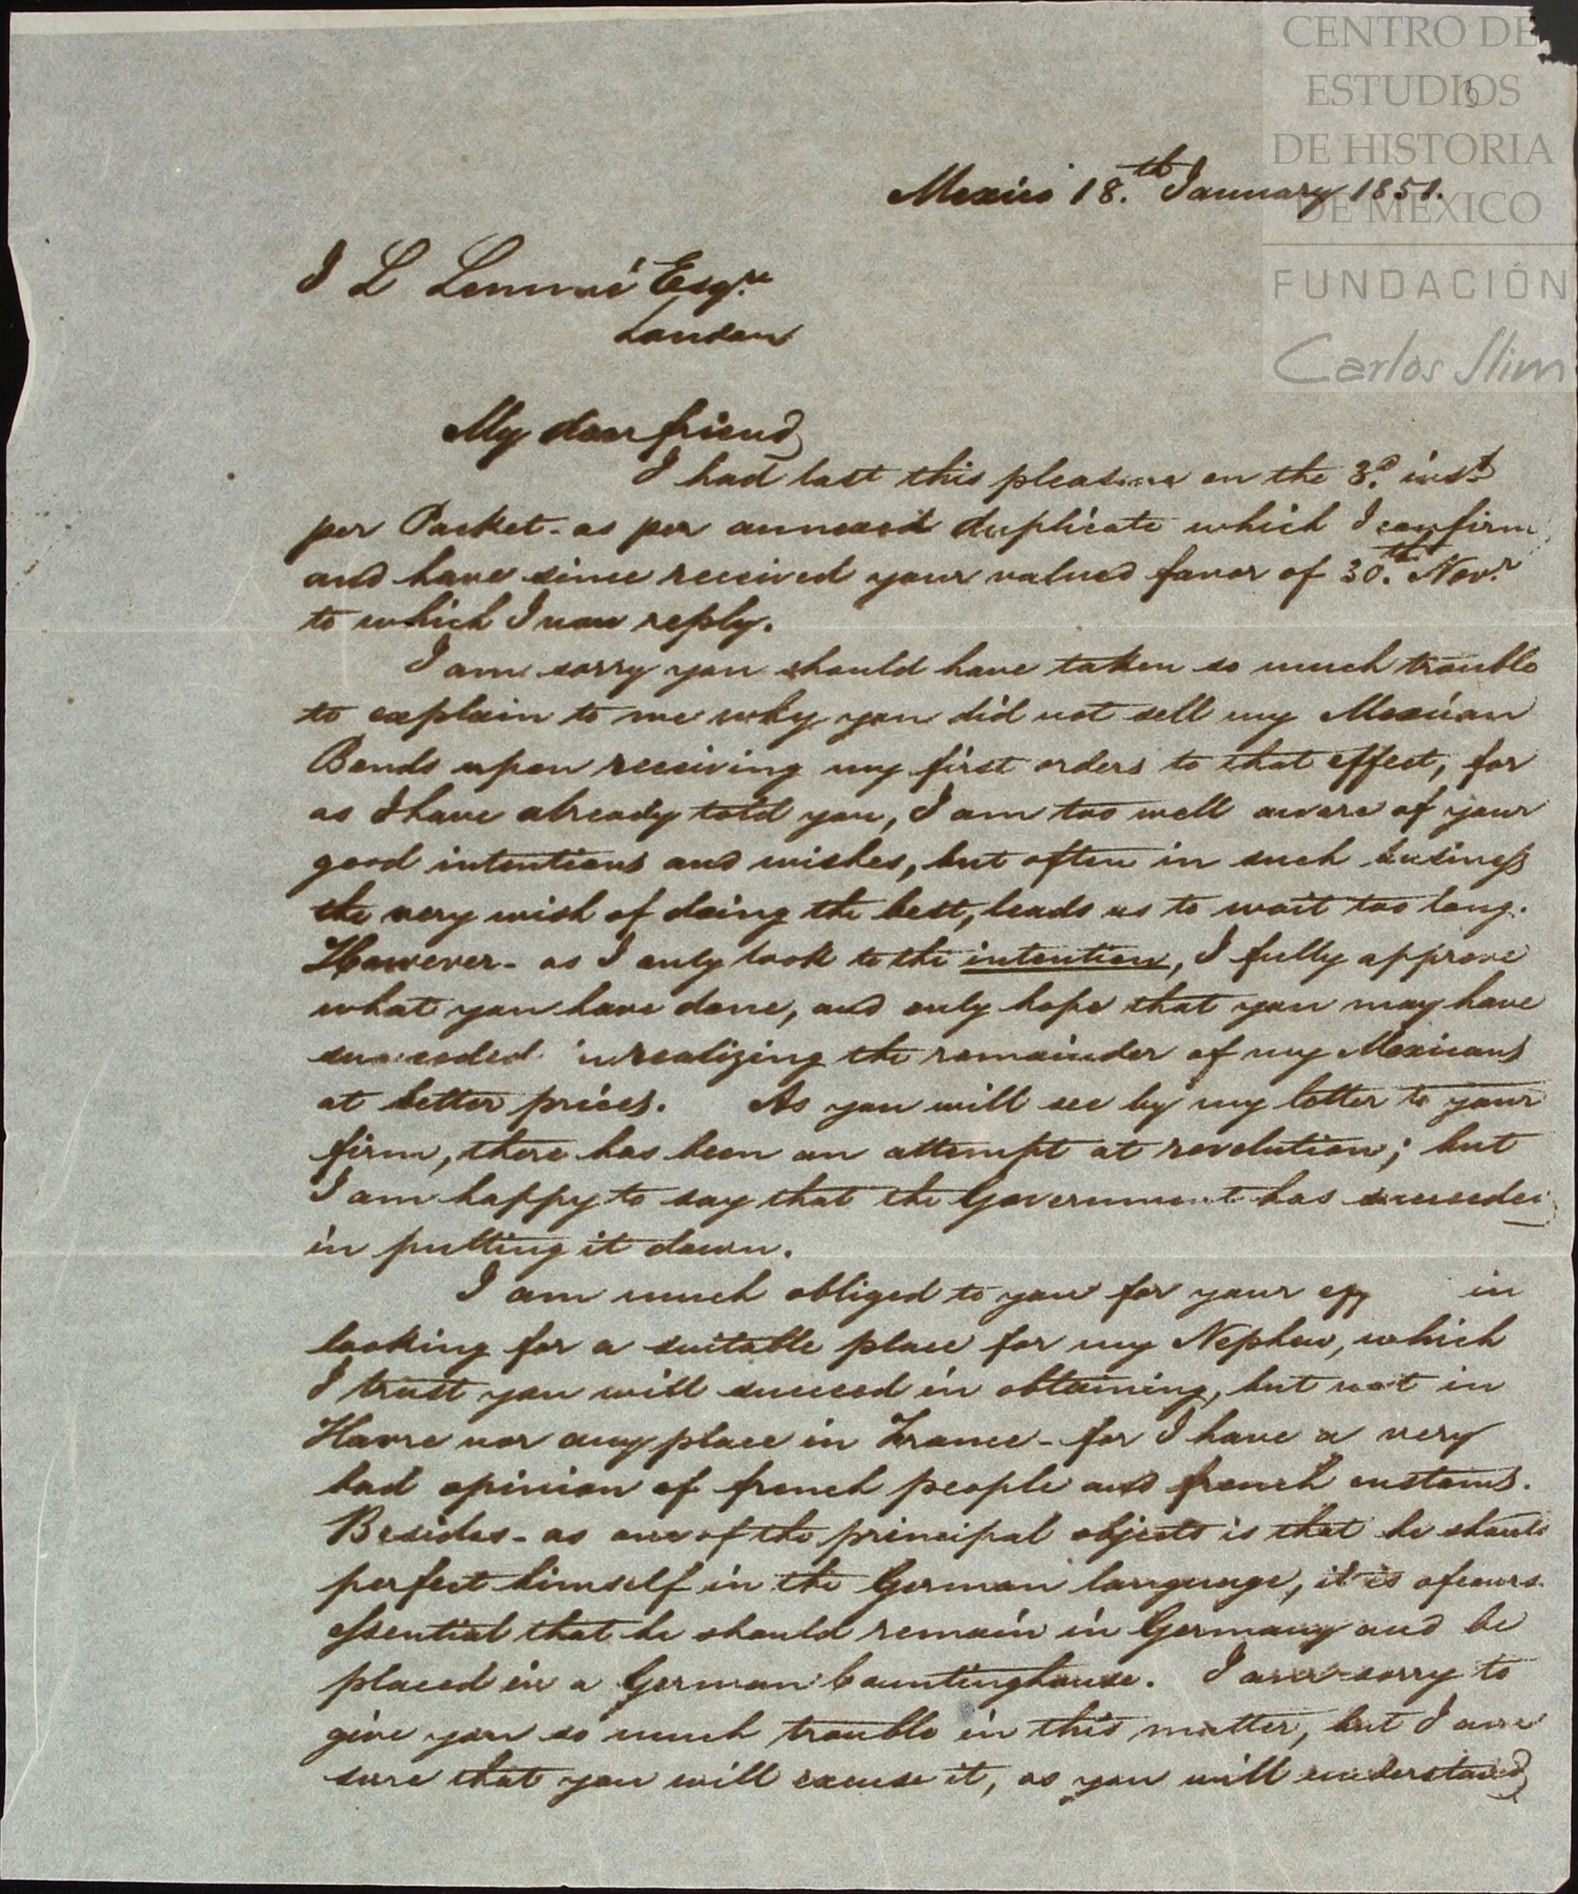 CENTRO DE
ESTUDIOS
DE HISTORIA
DE MÉXICO
FUNDACIÓN
Carlos Slim
Mexico 18.th January 1851.
J L Lemmé Esqre
London
My dear friend
I had last this pleasure on the 3.d inst
per Packet - as per annexed duplicate which I confirm
and have since received your valued favor of 30.th Novr
to which I now reply.
I am sorry you should have taken so much trouble
to explain to me why you did not sell my Mexican
Bonds upon receiving my first orders to that effect, for
as I have already told you, I am too well aware of your
good intentions and wishes, but often in such business
the very wish of doing the best, leads us to wait too long.
However - as I only look to the intention, I fully approve
what you have done, and only hope that you may have
succeeded in realizing the remainder of my Mexicans
at better prices. As you will see by my letter to your
firm, there has been an attempt at revolution; but
I am happy to say that the Government has succeeded
in putting it down.
I am much obliged to you for your in
looking for a suitable place for my Nephew, which
I trust you will succeed in obtaining, but not in
Havre nor any place in France - for I have a very
bad opinion of french people and french customs.
Besides - as one of the principal objects is that he should
perfect himself in the German language, it is of course
essential that he should remain in Germany and be
placed in a German Countinghouse. I am sorry to
give you so much trouble in this matter, but I am
sure that you will excuse it, as you will understand